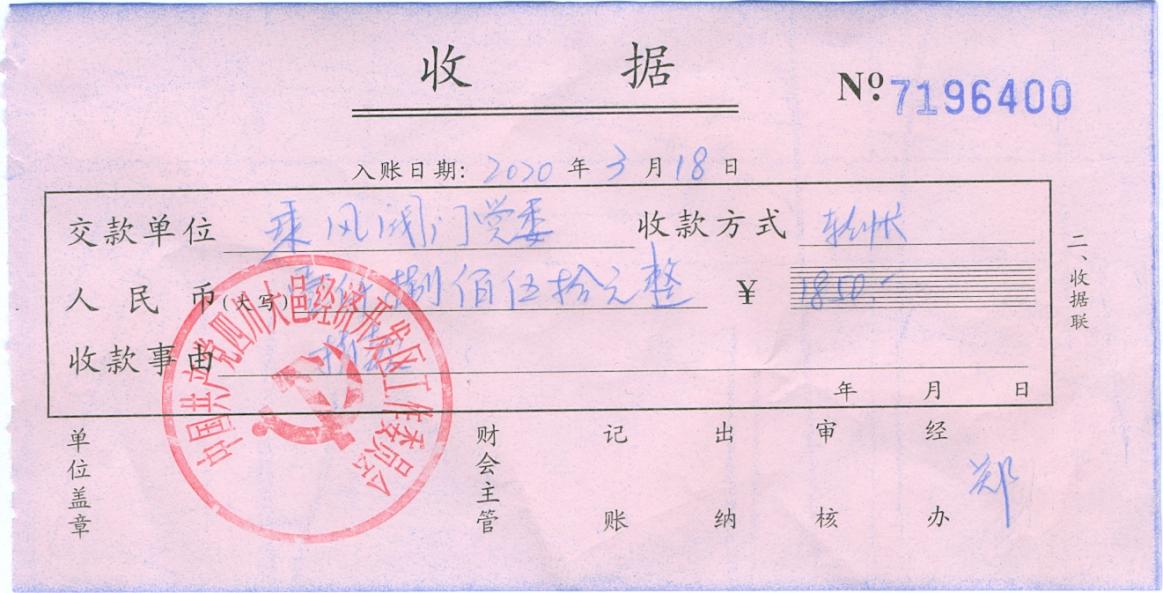 收 据
Nº 7196400
入账日期: 2020 年 3 月 18 日
交款单位 乘风阀门党委 收款方式 转帐
人民币(大写) 壹仟捌佰伍拾元整 ¥ 1850.-
收款事由
年 月 日
二、收据联
单位盖章 财会主管 记账 出纳 审核 经办 郑
中国共产党四川大邑经济开发区工作委员会